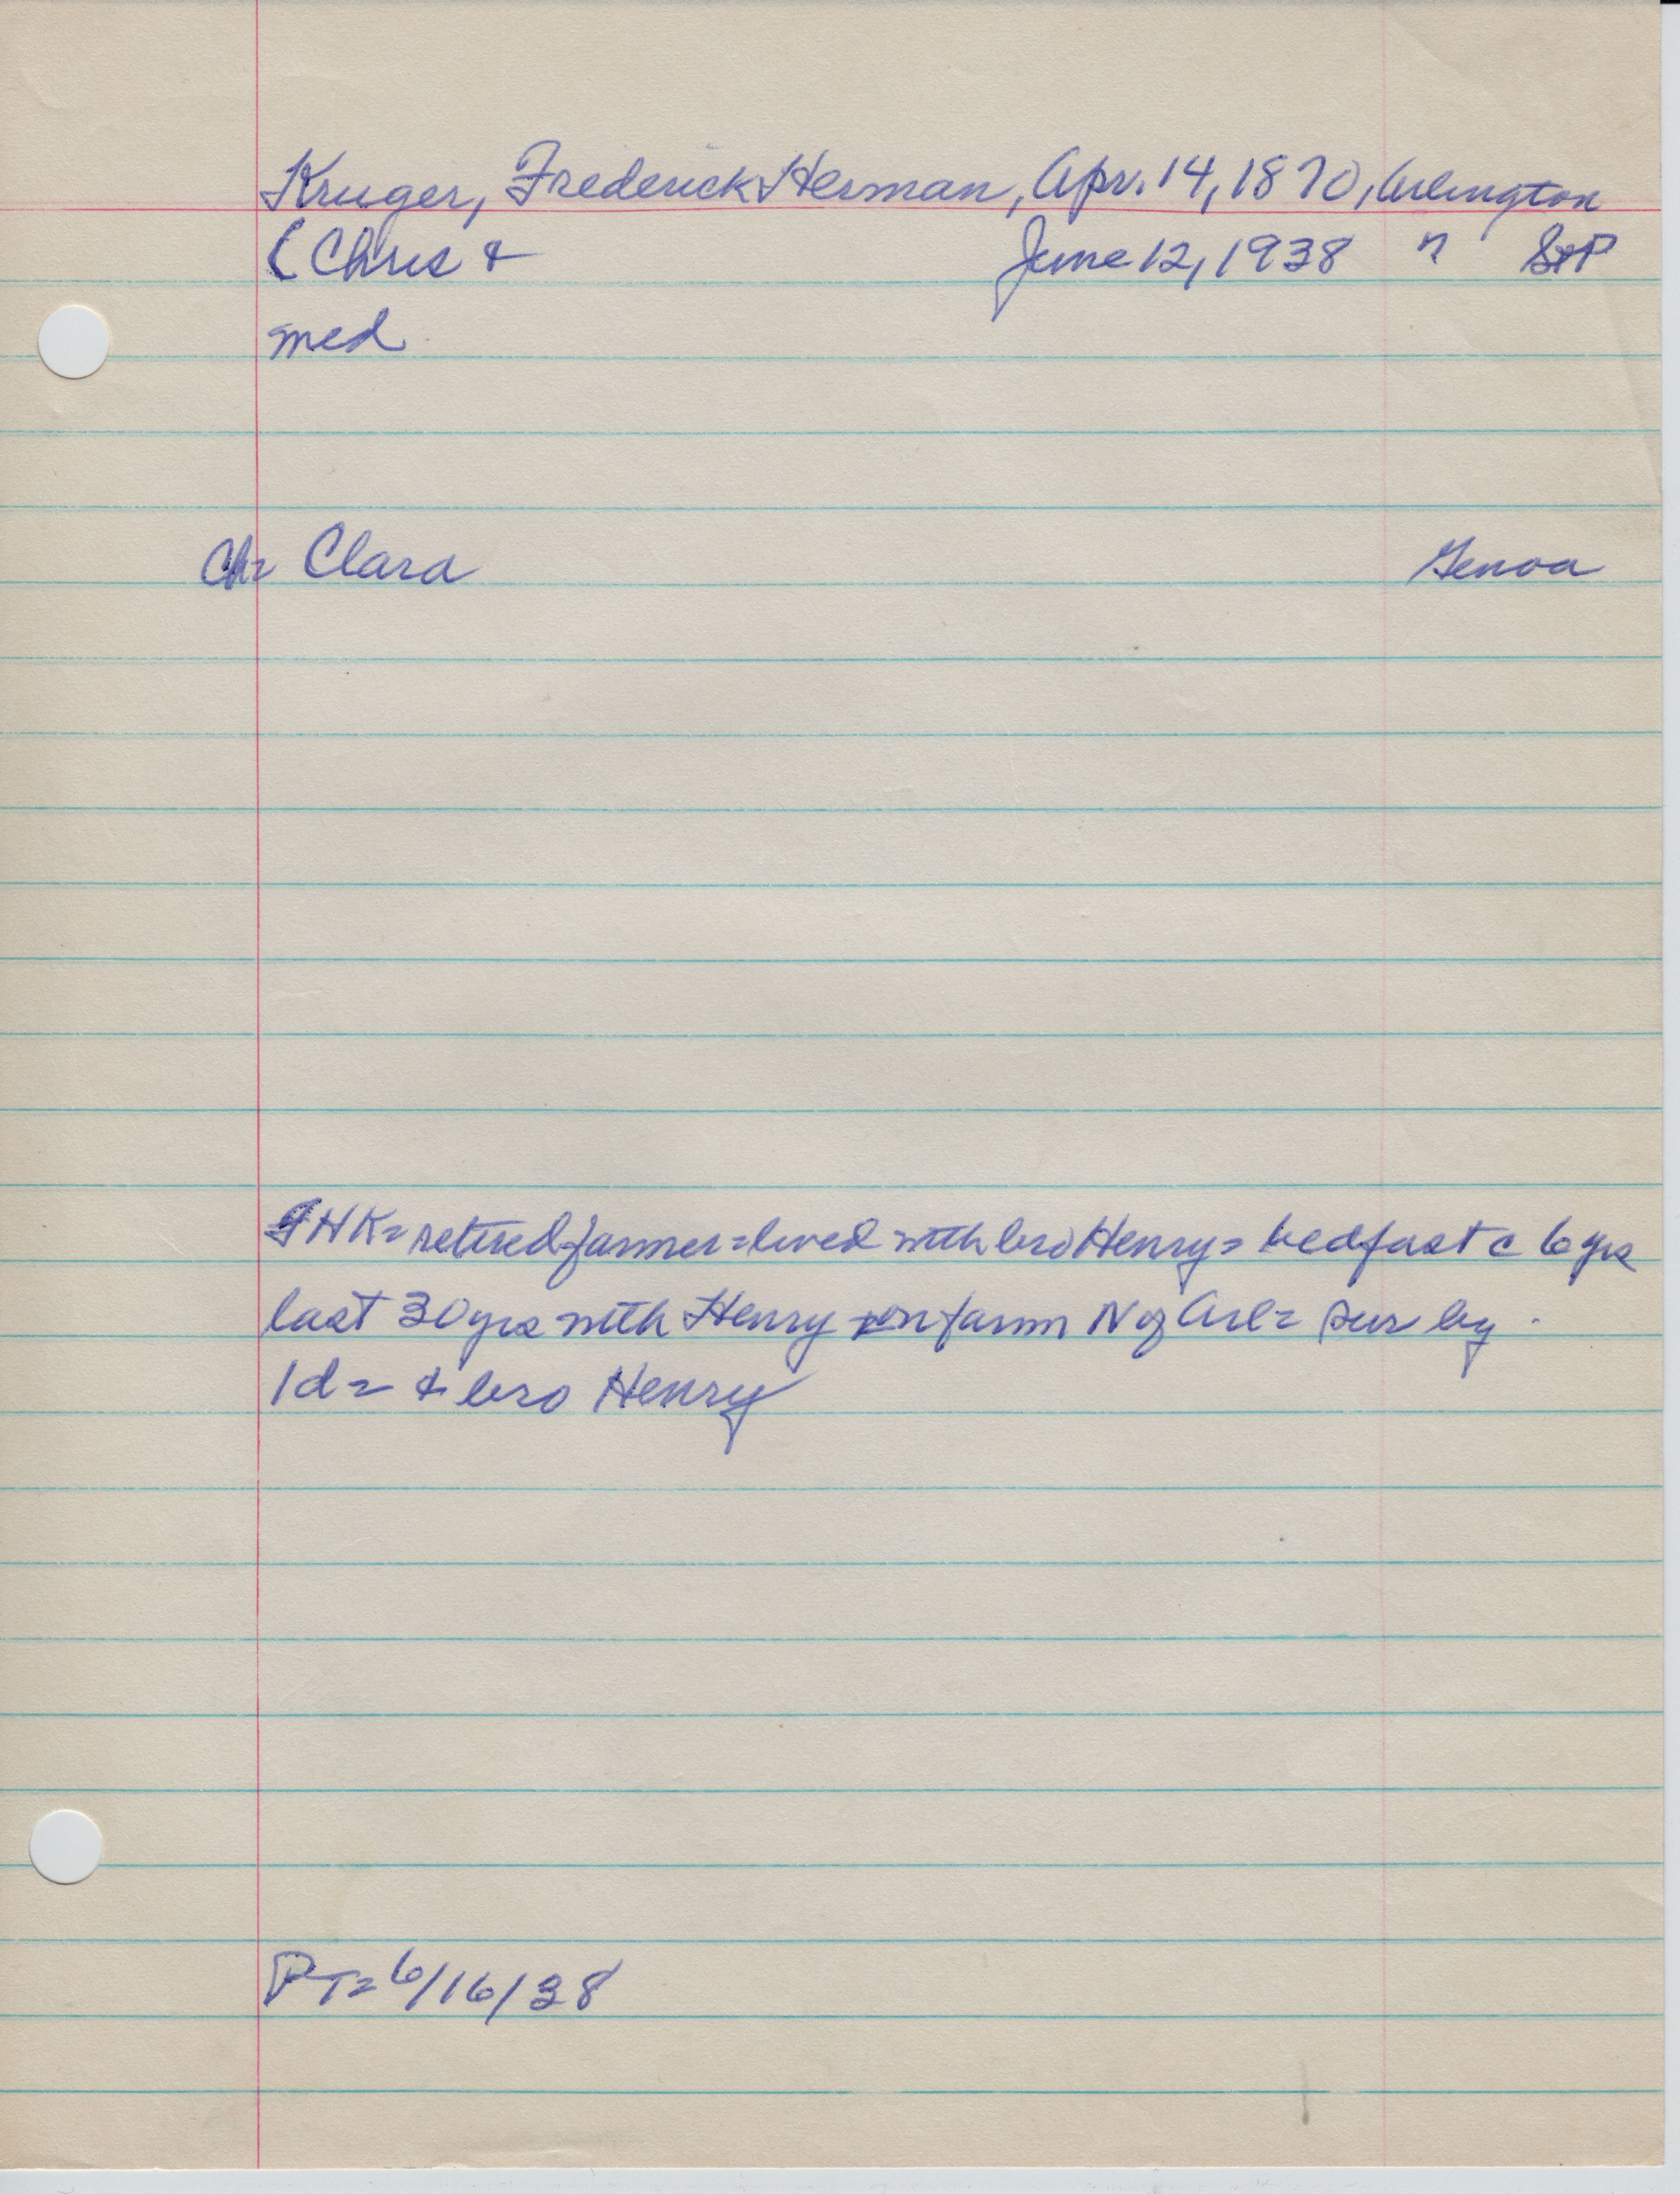 Kruger, Frederick Herman, Apr. 14, 1870, Arlington
(Chris & June 12, 1938 " StP
med
Ch= Clara Genoa
FHK= retired farmer= lived with bro Henry= bedfast c 6 yrs
last 30 yrs with Henry on farm N of Arl= sur by
1d= & bro Henry
PT= 6/16/38